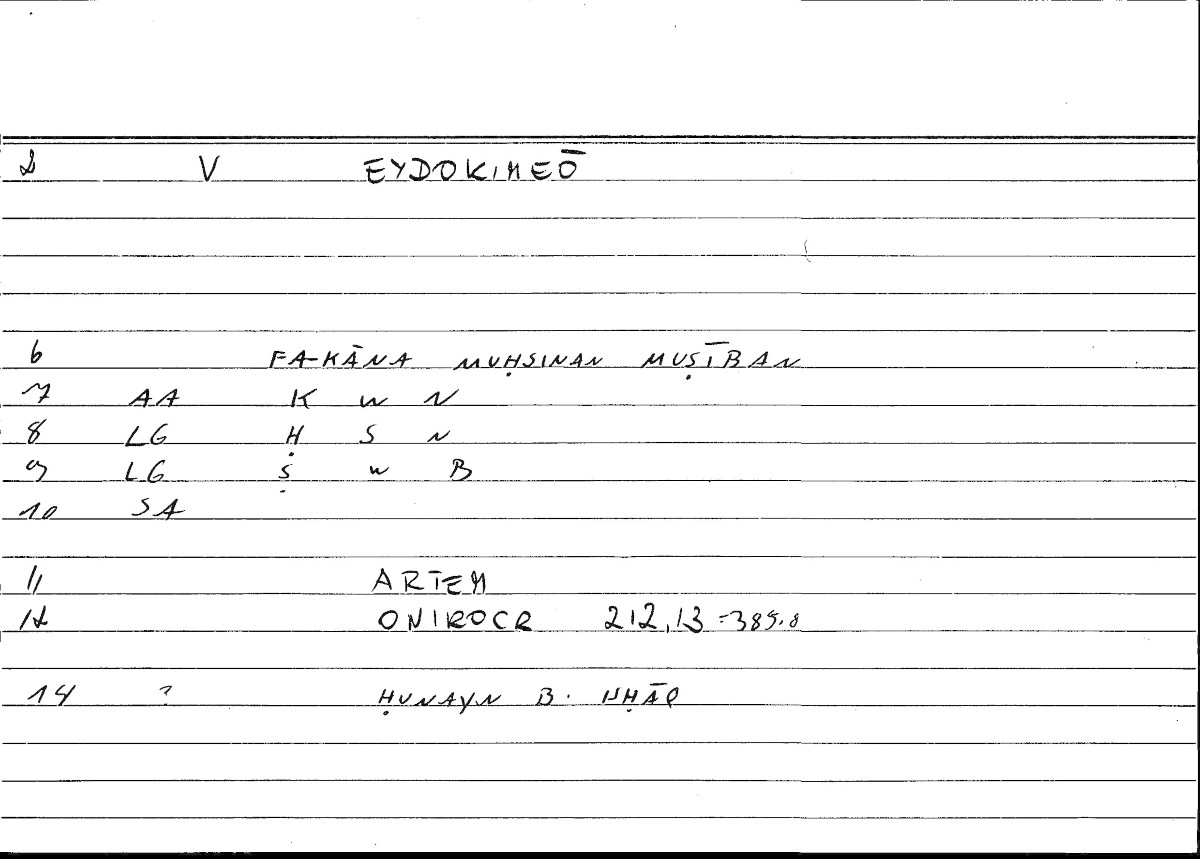 2 V EYDOKIMEŌ
6 FA-KĀNA MUḤSINAN MUṢĪBAN
7 AA K W N
8 LG Ḥ S N
9 LG Ṣ W B
10 SA
11 ARTEM
12 ONIROCR 212,13-385.8
14 ? ḤUNAYN B. ISḤĀQ